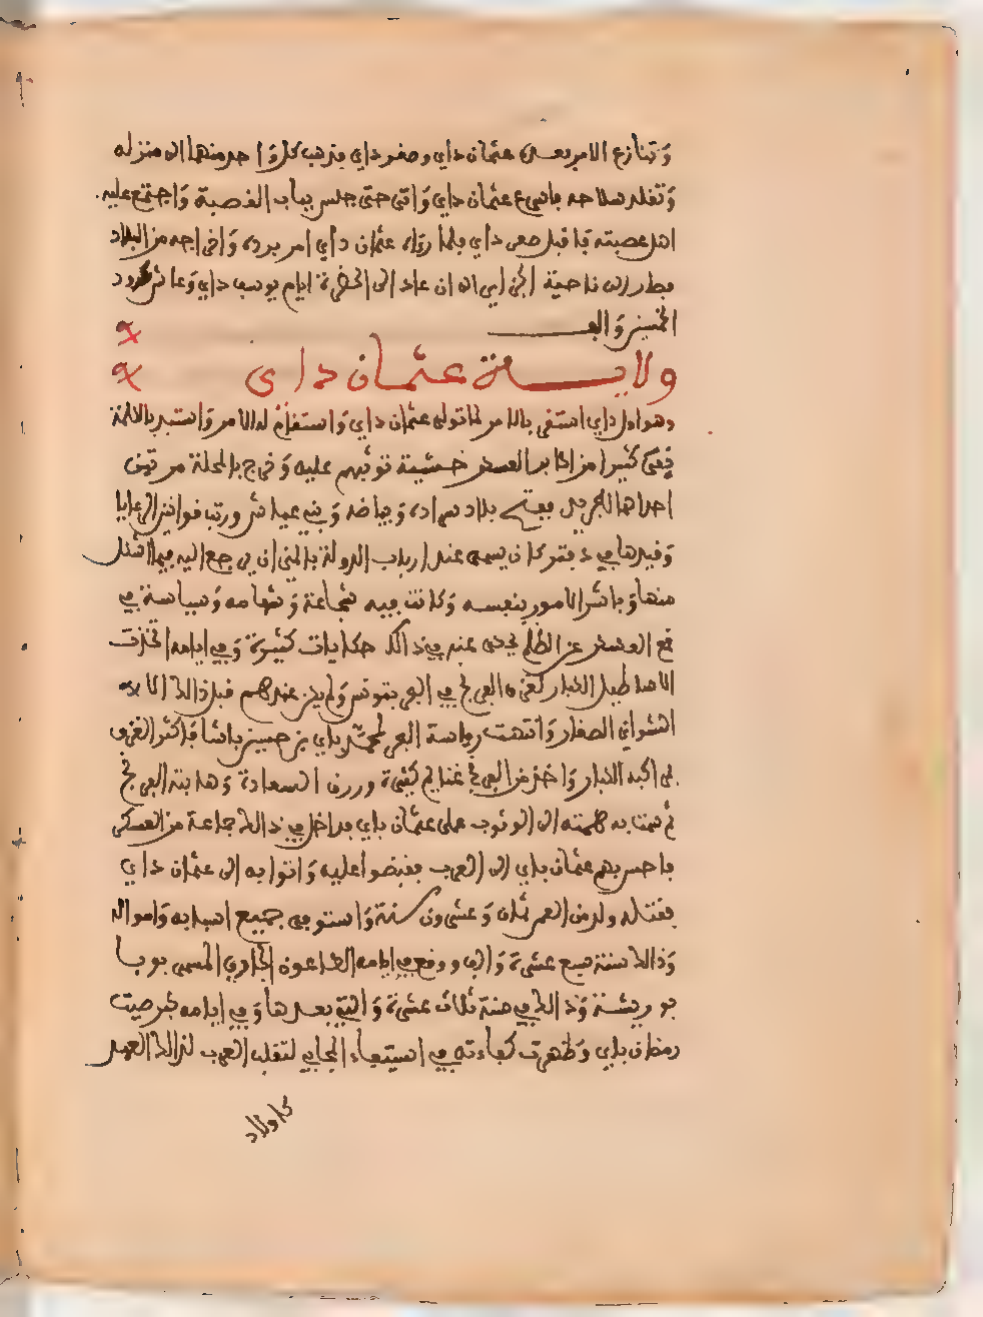 وتنازع الامر بعده عثمان داي وصفر داي فذهب كل واحد منهما الى منزله
وتقلد سلاحه فاسرع عثمان داي واتى حتى جلس بباب القصبة واجتمع عليه
اهل عصبته فاقبل صفر داي فلما رواه عثمان داي امر برده واخراجه من البلاد
فطار الى ناحية الجزاير الى ان عاد الى الحضرة ايام يوسف داي وعاش حدود
الخمسين والف
ولاية عثمان داي
وهو اول داي استقل بالامر لما تولى عثمان داي واستقام له الامر واستبد بالايالة
نفى كثيرا من اكابر العسكر خشية توثبهم عليه وخرج بالمحلة مرتين
احداها للجريد بلاد وبياضه ورتب قوانين الرعايا
وقيدها في دفتر كان يسمى عند ارباب الدولة بالميزان يرجع اليه فيما اشكل
منها وباشر الامور بنفسه وكانت فيه شجاعة وشهامة وسياسة في
قمع العسكر عن الظلم يحكى عنه في ذالك حكايات كثيرة وفي ايامه اتخذت
الاساطيل الكبار لغزو العدو في البحر بتونس ولم يكن عندهم قبل ذالك الا
الشواني الصغار وانتهت رياسة البحر لمحمد باي بن حسين باشا فاكثر الغزو
في الكبار واخذ من غنايم كثيرة ورزق السعادة وهابته
ثم سمت به همته الى الوثوب على عثمان داي فداخل في ذالك جماعة من العسكر
فاحس بهم عثمان داي الى العرب فقبضوا عليه واتوا به الى عثمان داي
فقتله وله من العمر ثمان وعشرون سنة واستوفى جميع اسبابه وامواله
وذالك سنة سبع عشرة والف ووقع في ايامه الطاعون الجارف المسمى بوبا
بو ريشة وذالك في سنة ثلاث عشرة والتي بعدها وفي ايامه
رمضان باي وظهرت كفاءته في استيفاء المجابي لتغلب العرب لذالك العهد
كاولاد